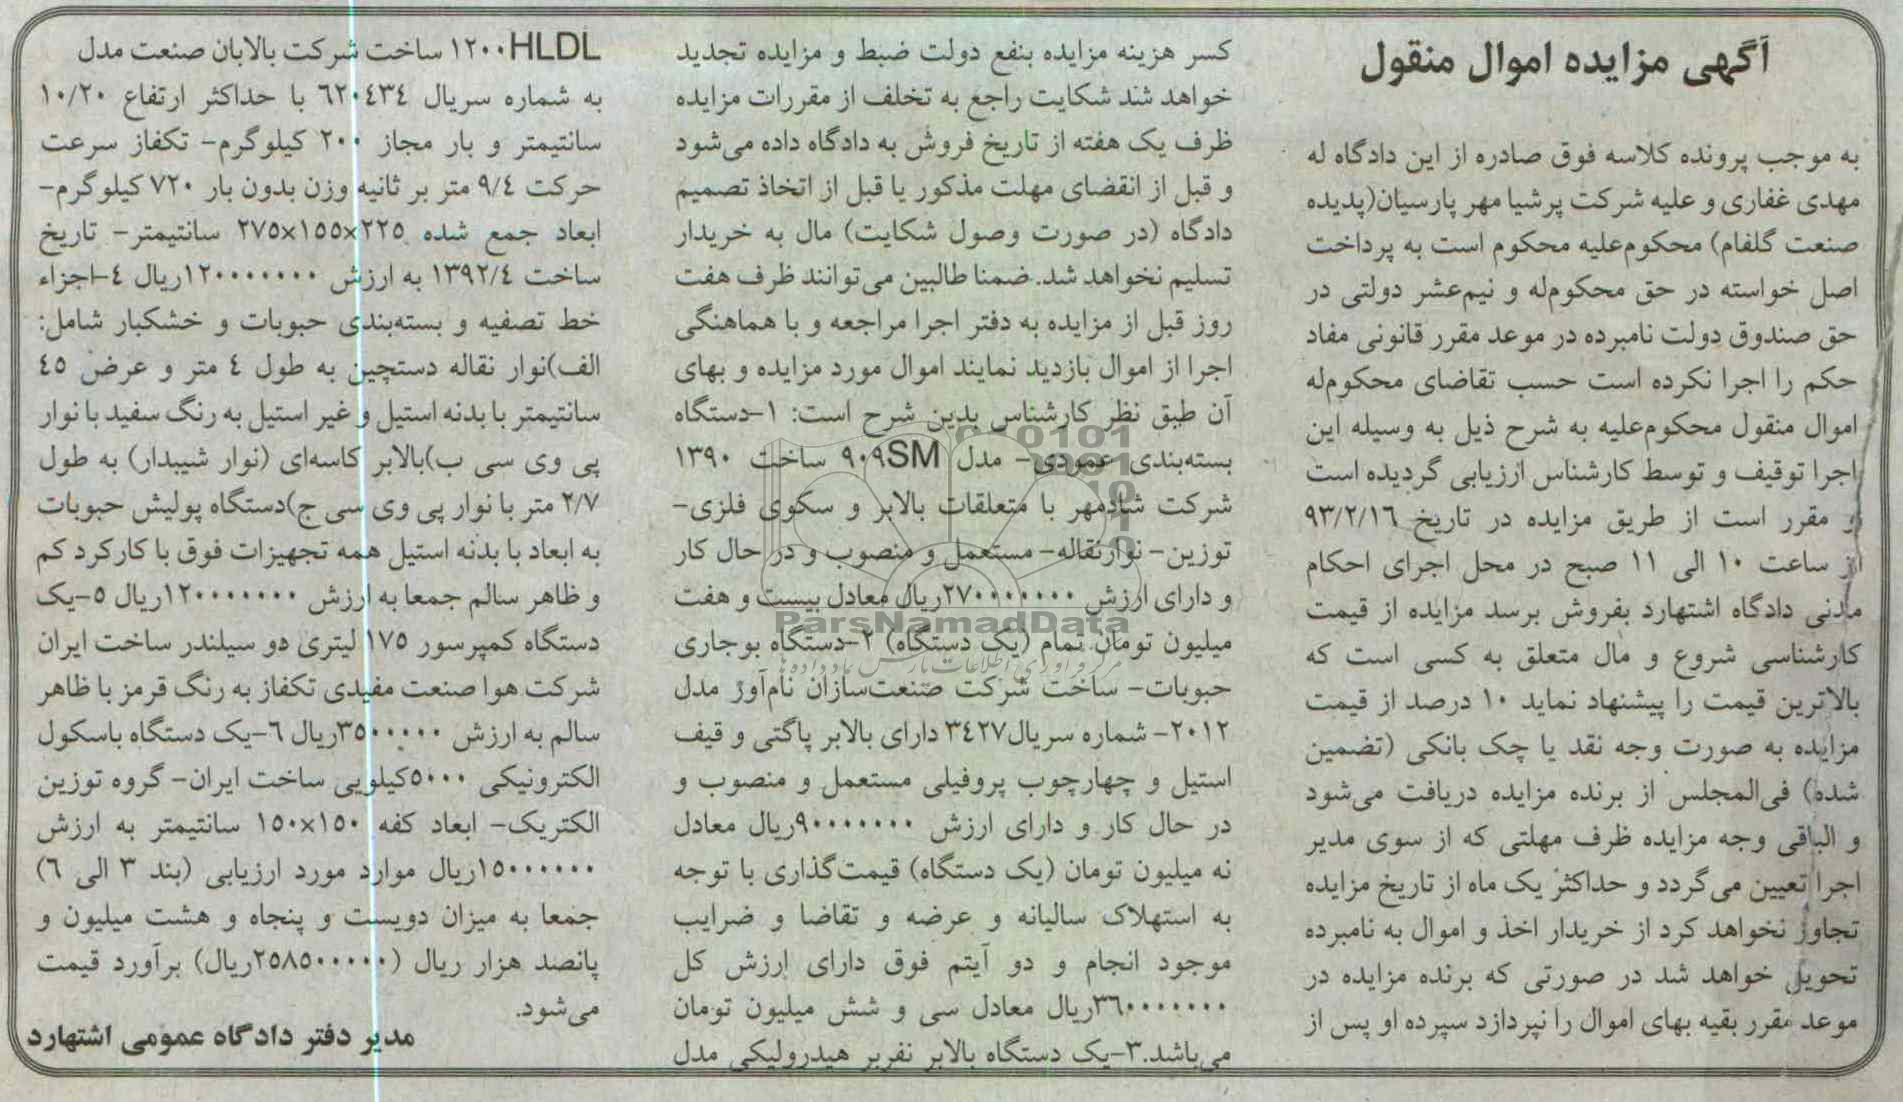 آگهی مزایده اموال منقول
به موجب پرونده کلاسه فوق صادره از این دادگاه له
مهدی غفاری و علیه شرکت پرشیا مهر پارسیان(پدیده
صنعت گلفام) محکوم‌علیه محکوم است به پرداخت
اصل خواسته در حق محکوم‌له و نیم‌عشر دولتی در
حق صندوق دولت نامبرده در موعد مقرر قانونی مفاد
حکم را اجرا نکرده است حسب تقاضای محکوم‌له
اموال منقول محکوم‌علیه به شرح ذیل به وسیله این
اجرا توقیف و توسط کارشناس ارزیابی گردیده است
و مقرر است از طریق مزایده در تاریخ ۹۳/۲/۱۶
از ساعت ۱۰ الی ۱۱ صبح در محل اجرای احکام
مدنی دادگاه اشتهارد بفروش برسد مزایده از قیمت
کارشناسی شروع و مال متعلق به کسی است که
بالاترین قیمت را پیشنهاد نماید ۱۰ درصد از قیمت
مزایده به صورت وجه نقد یا چک بانکی (تضمین
شده) فی‌المجلس از برنده مزایده دریافت می‌شود
و الباقی وجه مزایده ظرف مهلتی که از سوی مدیر
اجرا تعیین می‌گردد و حداکثر یک ماه از تاریخ مزایده
تجاوز نخواهد کرد از خریدار اخذ و اموال به نامبرده
تحویل خواهد شد در صورتی که برنده مزایده در
موعد مقرر بقیه بهای اموال را نپردازد سپرده او پس از
کسر هزینه مزایده بنفع دولت ضبط و مزایده تجدید
خواهد شد شکایت راجع به تخلف از مقررات مزایده
ظرف یک هفته از تاریخ فروش به دادگاه داده می‌شود
و قبل از انقضای مهلت مذکور یا قبل از اتخاذ تصمیم
دادگاه (در صورت وصول شکایت) مال به خریدار
تسلیم نخواهد شد. ضمنا طالبین می‌توانند ظرف هفت
روز قبل از مزایده به دفتر اجرا مراجعه و با هماهنگی
اجرا از اموال بازدید نمایند اموال مورد مزایده و بهای
آن طبق نظر کارشناس بدین شرح است: ۱-دستگاه
بسته‌بندی عمودی- مدل ۹۰۹SM ساخت ۱۳۹۰
شرکت شادمهر با متعلقات بالابر و سکوی فلزی-
توزین- نوارنقاله- مستعمل و منصوب و در حال کار
و دارای ارزش ۲۷۰۰۰۰۰۰۰ریال معادل بیست و هفت
میلیون تومان تمام (یک دستگاه) ۲-دستگاه بوجاری
حبوبات- ساخت شرکت صنعت‌سازان نام‌آور مدل
۲۰۱۲- شماره سریال۳۴۲۷ دارای بالابر پاگتی و قیف
استیل و چهارچوب پروفیلی مستعمل و منصوب و
در حال کار و دارای ارزش ۹۰۰۰۰۰۰۰ریال معادل
نه میلیون تومان (یک دستگاه) قیمت‌گذاری با توجه
به استهلاک سالیانه و عرضه و تقاضا و ضرایب
موجود انجام و دو آیتم فوق دارای ارزش کل
۳۶۰۰۰۰۰۰۰ریال معادل سی و شش میلیون تومان
می‌باشد.۳-یک دستگاه بالابر نفربر هیدرولیکی مدل
۱۲۰۰HLDL ساخت شرکت بالابان صنعت مدل
به شماره سریال ۶۲۰۴۳۴ با حداکثر ارتفاع ۱۰/۲۰
سانتیمتر و بار مجاز ۲۰۰ کیلوگرم- تکفاز سرعت
حرکت ۹/۴ متر بر ثانیه وزن بدون بار ۷۲۰ کیلوگرم-
ابعاد جمع شده ۲۲۵×۱۵۵×۲۷۵ سانتیمتر- تاریخ
ساخت ۱۳۹۲/۴ به ارزش ۱۲۰۰۰۰۰۰۰ریال ۴-اجزاء
خط تصفیه و بسته‌بندی حبوبات و خشکبار شامل:
الف)نوار نقاله دستچین به طول ۴ متر و عرض ۴۵
سانتیمتر با بدنه استیل و غیر استیل به رنگ سفید با نوار
پی وی سی ب)بالابر کاسه‌ای (نوار شیبدار) به طول
۲/۷ متر با نوار پی وی سی ج)دستگاه پولیش حبوبات
به ابعاد با بدنه استیل همه تجهیزات فوق با کارکرد کم
و ظاهر سالم جمعا به ارزش ۱۲۰۰۰۰۰۰۰ریال ۵-یک
دستگاه کمپرسور ۱۷۵ لیتری دو سیلندر ساخت ایران
شرکت هوا صنعت مفیدی تکفاز به رنگ قرمز با ظاهر
سالم به ارزش ۳۵۰۰۰۰۰ریال ۶-یک دستگاه باسکول
الکترونیکی ۵۰۰۰کیلویی ساخت ایران- گروه توزین
الکتریک- ابعاد کفه ۱۵۰×۱۵۰ سانتیمتر به ارزش
۱۵۰۰۰۰۰۰ریال موارد مورد ارزیابی (بند ۳ الی ۶)
جمعا به میزان دویست و پنجاه و هشت میلیون و
پانصد هزار ریال (۲۵۸۵۰۰۰۰۰ریال) برآورد قیمت
می‌شود.
مدیر دفتر دادگاه عمومی اشتهارد
ParsNamadData